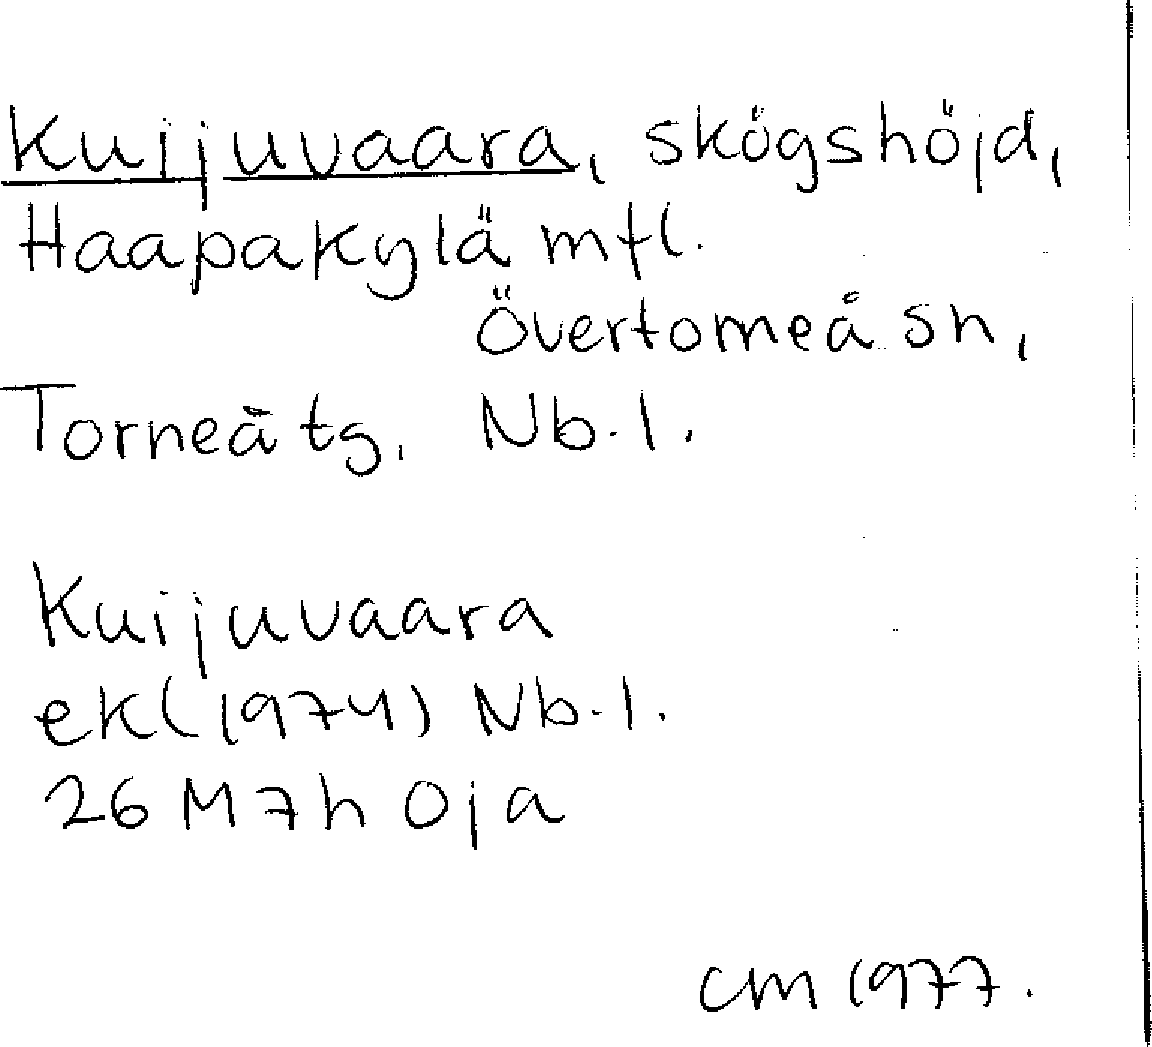 Kuijuvaara, skögshöjd,
Haapakylä mtl.
Övertorneå sn,
Torneå tg, Nb. l.
Kuijuvaara
ek (1974) Nb. l.
26 M 7h Oja
CM 1977.